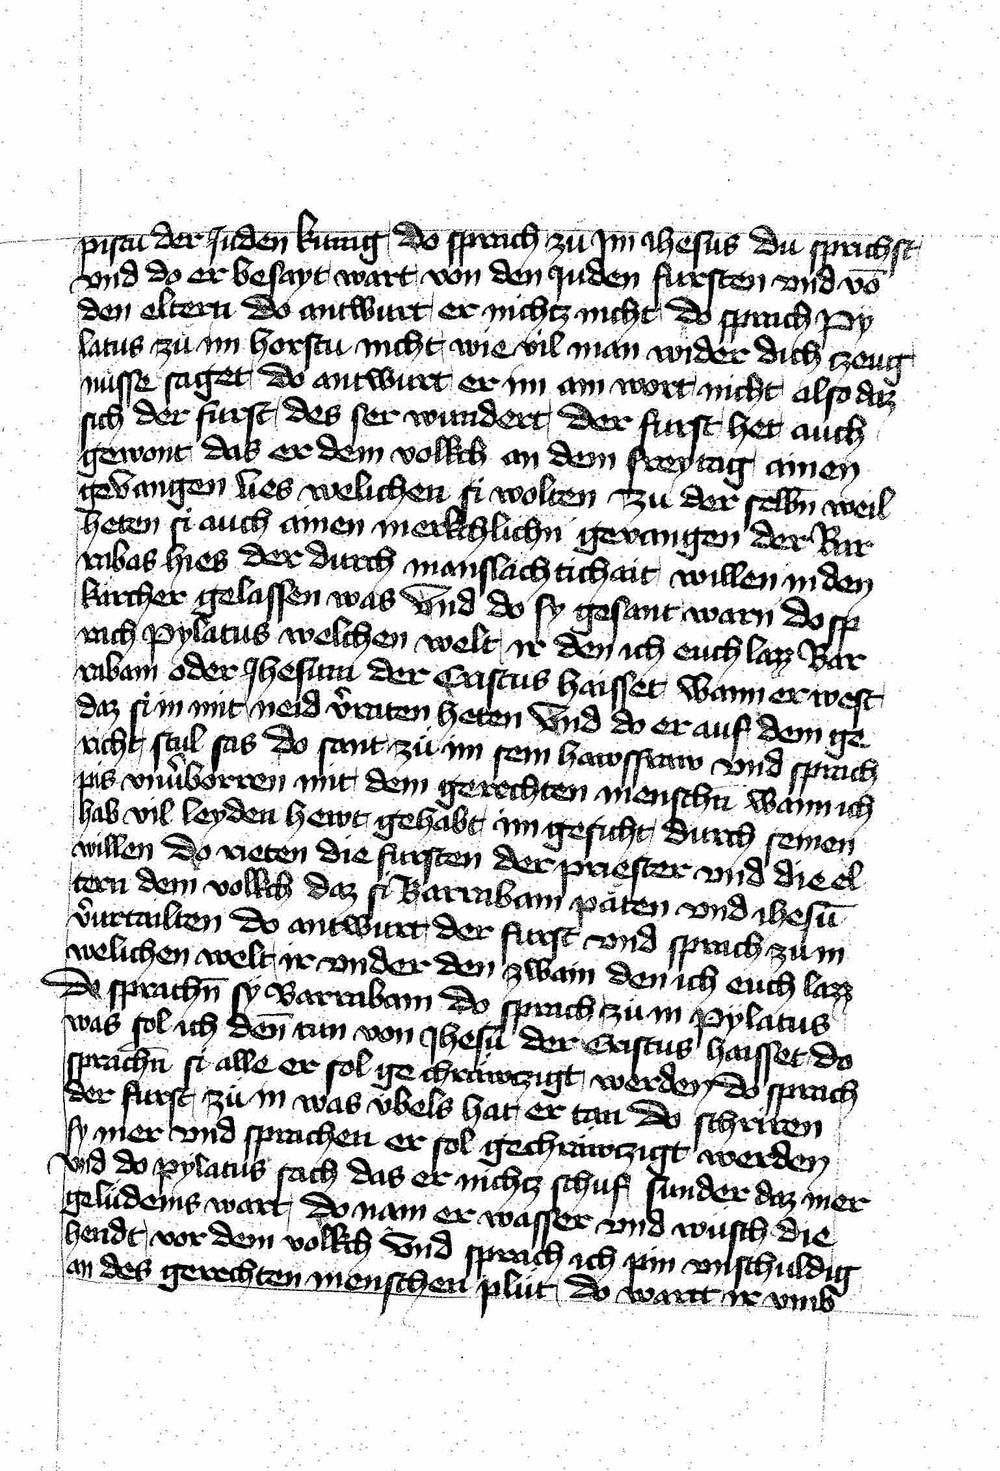 pistu der Juden kunig do sprach zu im ihesus du sprichst
vnd do er besayt wart von den Juden fursten vnd vō
den eltern do antwurt er nichtz nicht do sprach Py
latus zů im horstu nicht wie vil man wider dich tzeug
nüsse saget do antwurt er im ain wort nicht also daz
sich der furst des ser wundert der furst het auch
gewont das er dem volkch an dem freytag ainen
gevangen lies welichen si wolten zu der selbn̄ weil
heten si auch ainen merkchlichn gevangen der Bar
rabas hies der durch manslachtichait willen in den
karcher gelassen was Vnd do sy gesant warn do sp
rach Pylatus welchen welt ir den ich euch lazz Bar
rabam oder Jhesum der Cristus haisset wann er west
daz si in mit neid v̄raten heten Vnd do er auf dem ge
richt stul sas do sant zů im sein hawsfraw vnd sprach
pis vnv̄borren mit dem gerechten menschn̄ wann ich
hab vil leyden hewt gehabt im gesicht durch seinen
willen do rieten die fursten der priester vnd die el
tern dem volkch daz si Barrabam päten vnd ihesū
v̄urtailten do antwurt der furst vnd sprach zu in
welichen welt ir vnder den zwain den ich euch lazz
Do sprachn̄ sy Barrabam do sprach zu in Pylatus
was sol ich den̄ tun von Jhesū der Cristus haisset do
sprachn̄ si alle er sol ge chrawtzigt werden do sprach
der furst zů in was v̈bels hat er tan do schriren
sy mer vnd sprachen er sol gechrawtzigt werden
vnd do pylatus sach das er nichtz schuf sunder daz mer
geludems wart do nam er wasser vnd wusch die
hendt vor dem volkch Vnd sprach ich pin vnschuldig
an des gerechten menschen plut do wartt ir vmb